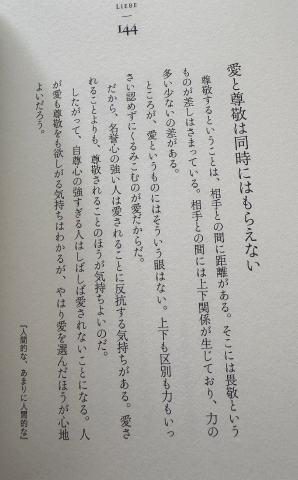 LIEBE
144
愛と尊敬は同時にはもらえない
尊敬するということは、相手との間に距離がある。そこには畏敬という
ものが差しはさまっている。相手との間には上下関係が生じており、力の
多い少ないの差がある。
ところが、愛というものにはそういう眼はない。上下も区別も力もいっ
さい認めずにくるみこむのが愛だからだ。
だから、名誉心の強い人は愛されることに反抗する気持ちがある。愛さ
れることよりも、尊敬されることのほうが気持ちよいのだ。
したがって、自尊心の強すぎる人はしばしば愛されないことになる。人
が愛も尊敬をも欲しがる気持ちはわかるが、やはり愛を選んだほうが心地
よいだろう。
『人間的な、あまりに人間的な』